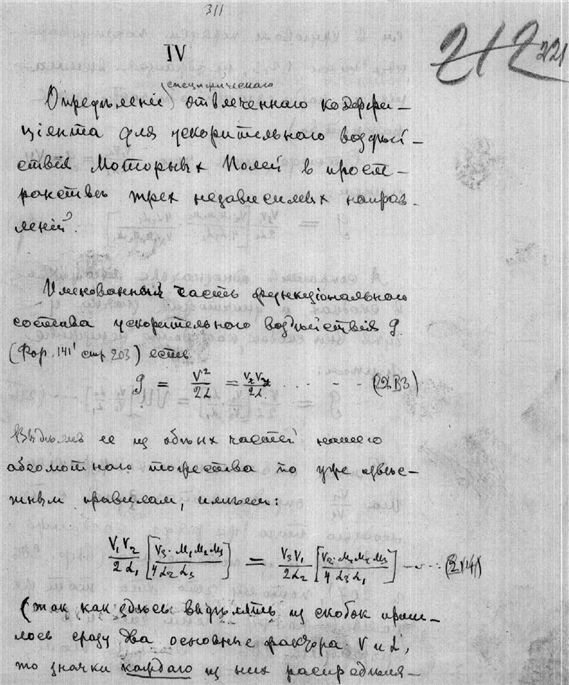 311
212 221
IV
специфического
Определенiе отвлеченнаго коеффи-
цiента для ускорительнаго воздѣй-
ствiя Моторных Полей в прост-
ранствѣ трех независимых направ-
ленiй.
Именованный часть функцiональнаго
состава ускорительнаго воздѣйствiя g.
(Фор. 141' стр 203) есть
g = V²/2L = V₂V₃/2L . . . - - (213)
Выдѣливъ ее из обѣих частей нашего
абсолютнаго тождества по уже
правилам, имѣем:
V₁V₂/2L₁ [V₃·M₁M₂M₃/4L₂L₃] = V₃V₁/2L₂ [V₂·M₁M₂M₃/4L₃L₁] - - ... (214)
(так как здѣсь выдѣлять из скобок приш-
лось сразу два основные фактора V и L,
то значки каждаго из них распредѣля-